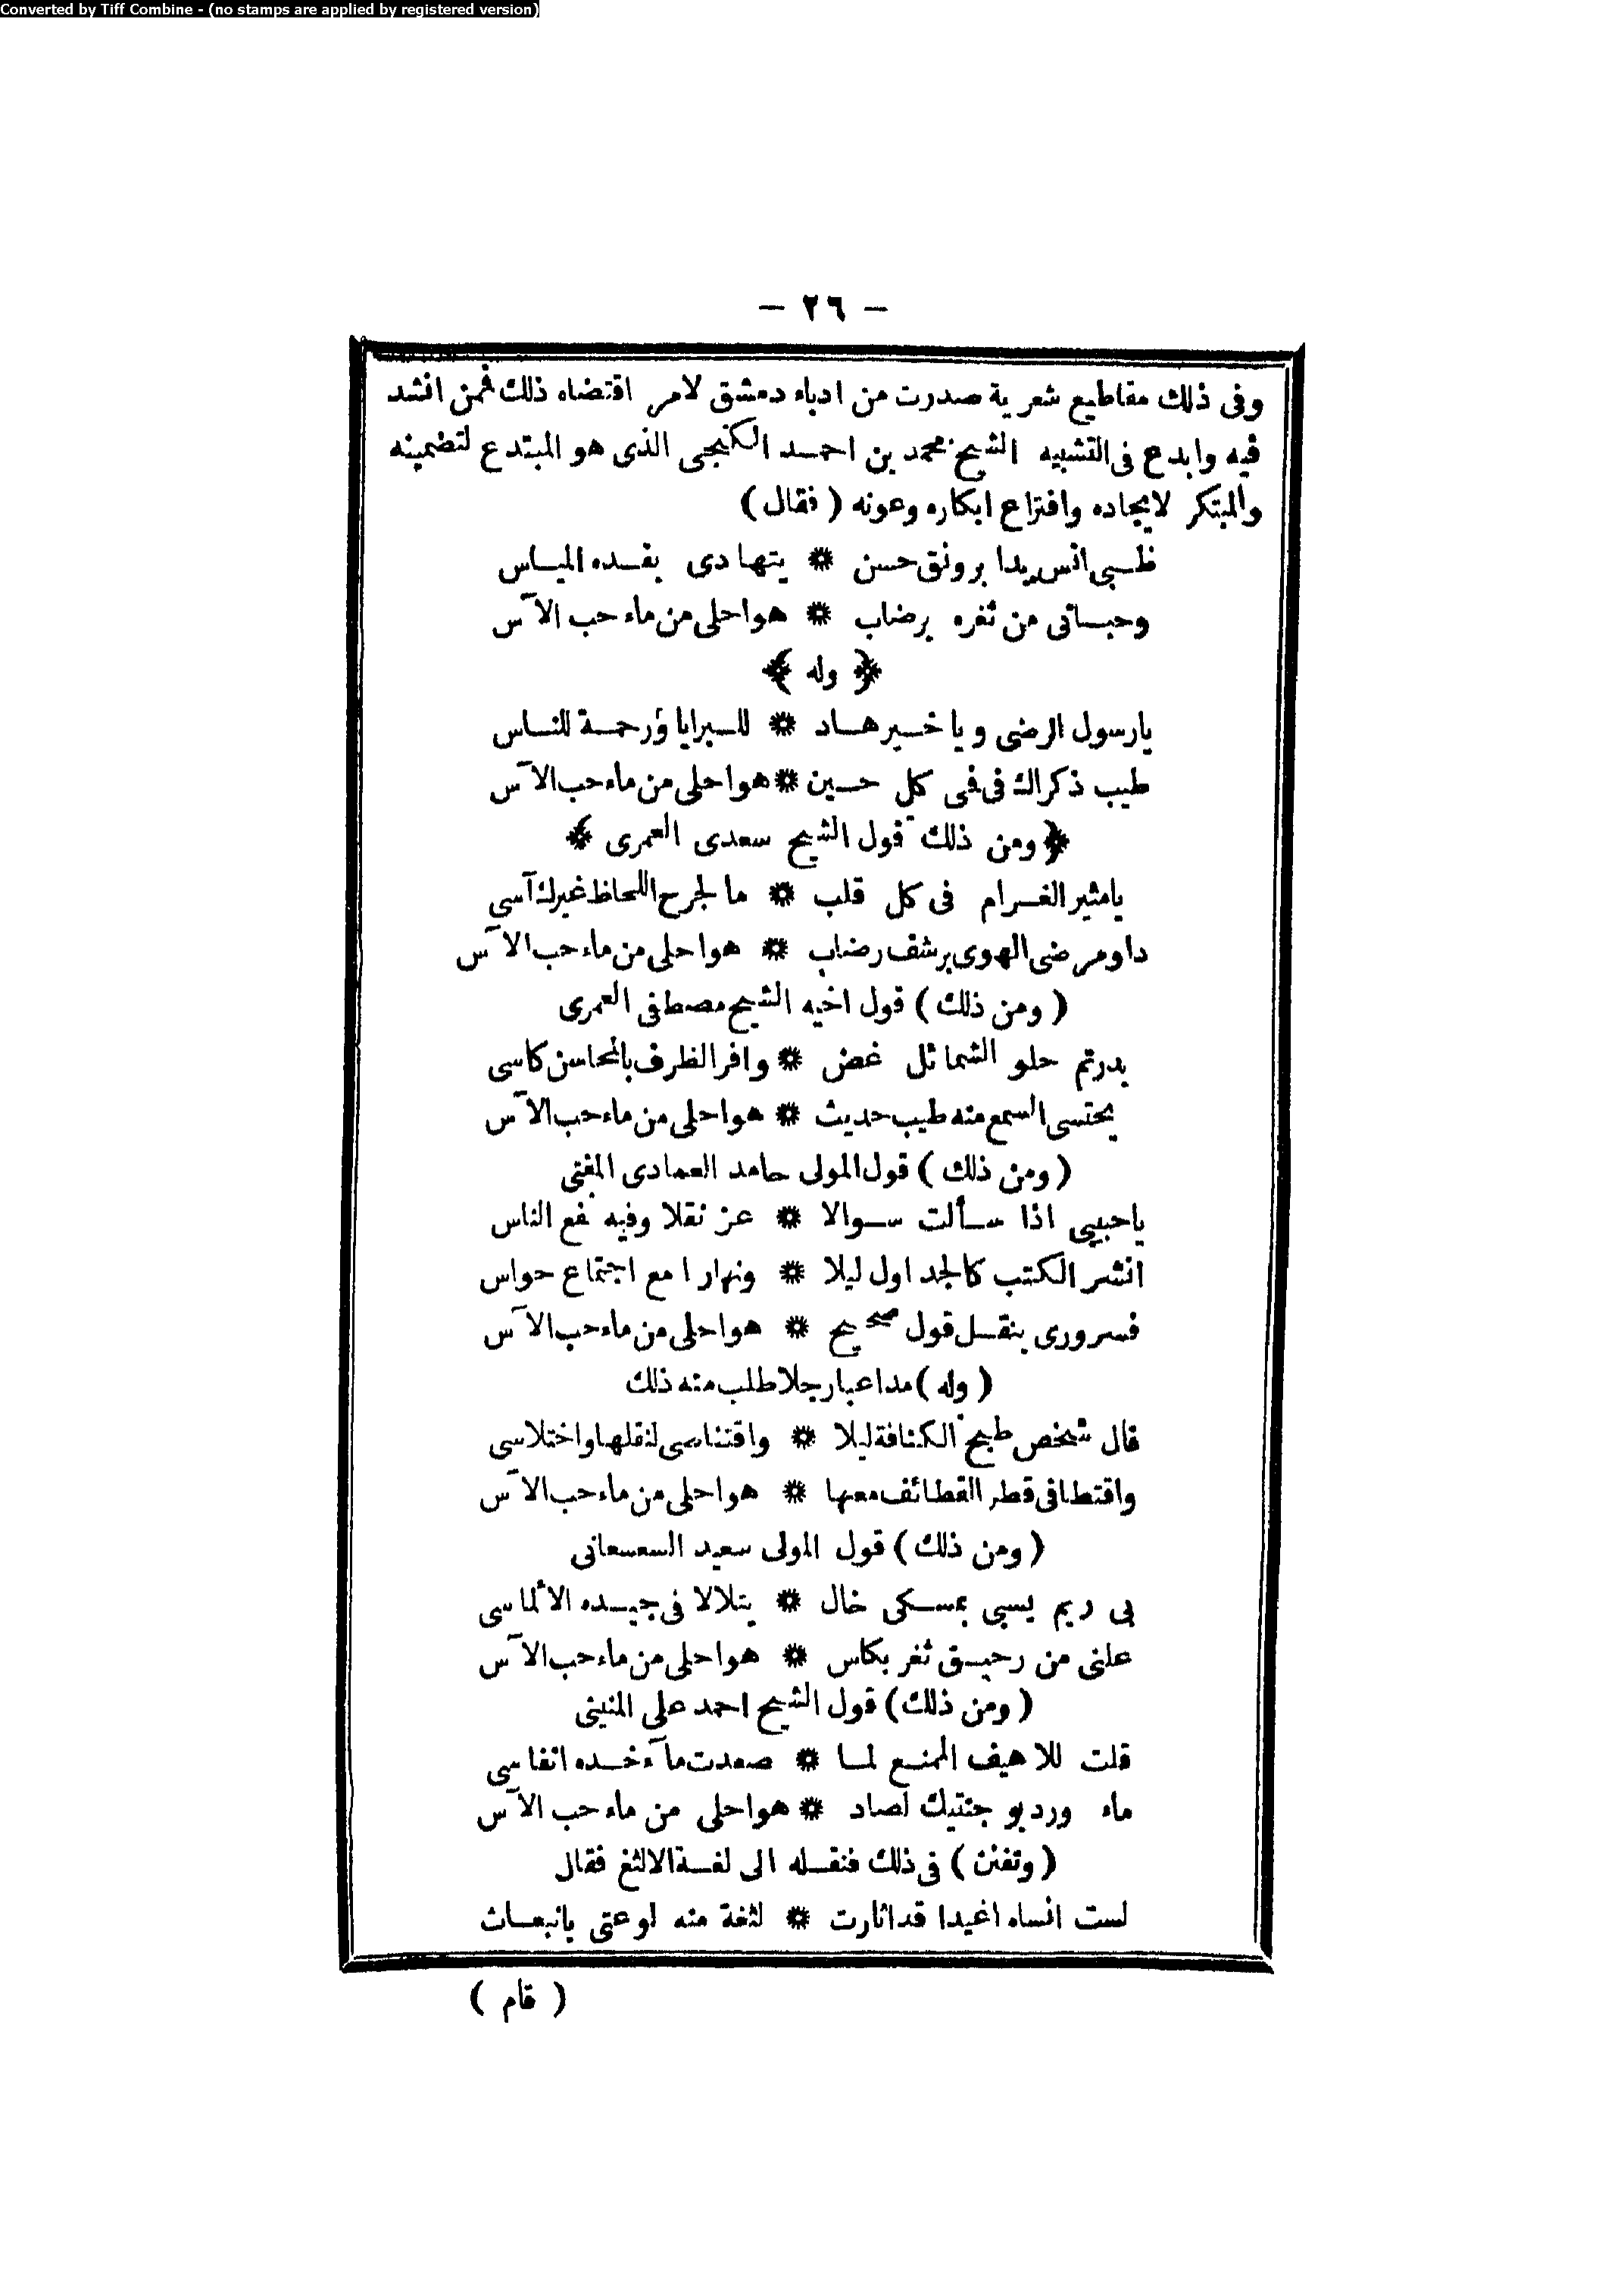 Converted by Tiff Combine - (no stamps are applied by registered version)
— ٢٦ —
وفى ذلك مقاطيع شعرية صدرت من ادباء دمشق لامر اقتضاه ذلك فمن انشد
فيه وابدع فى التشبيه الشيخ محمد بن احمد الكنجى الذى هو المبتدع لتضمينه
والمبتكر لايجاده وافتزاع ابكاره وعونه ( فقال )
ظبى انس بدا برونق حسن * يتهادى بقده المياس
وحبانى من ثغره برضاب * هو احلى من ماء حب الآس
﴿ وله ﴾
يارسول الرضى ويا خير هاد * للبرايا ورحمة للناس
طيب ذكراك فى فمى كل حين * هو احلى من ماء حب الآس
﴿ ومن ذلك قول الشيخ سعدى العمرى ﴾
يامثير الغرام فى كل قلب * ما لجرح اللحاظ غيرك آسى
داو مرضى الهوى برشف رضاب * هو احلى من ماء حب الآس
( ومن ذلك ) قول اخيه الشيخ مصطفى العمرى
بدرتم حلو الشمائل غض * وافر الظرف بالمحاسن كاسى
يحتسى السمع منه طيب حديث * هو احلى من ماء حب الآس
( ومن ذلك ) قول المولى حامد العمادى المفتى
ياحبيبى اذا سألت سوالا * عز نقلا وفيه نفع الناس
انشر الكتب كالجداول ليلا * ونهارا مع اجتماع حواس
فسرورى بنقل قول صحيح * هو احلى من ماء حب الآس
( وله ) مداعبا رجلا طلب منه ذلك
قال شخص طبخ الكنافة ليلا * واقتناصى لنقلها واختلاسى
واقتطافى قطر القطائف معها * هو احلى من ماء حب الآس
( ومن ذلك ) قول المولى سعيد السعسعانى
بى ريم يسبى بمسكى خال * يتلالا فى جيده الألماسى
علنى من رحيق ثغر بكاس * هو احلى من ماء حب الآس
( ومن ذلك ) قول الشيخ احمد على المنينى
قلت للاهيف الممنع لما * صعدت مآء خده انفاسى
ماء ورد بو جنتيك لصاد * هو احلى من ماء حب الآس
( وتفنن ) فى ذلك فنقله الى لغة الالثغ فقال
لست انساه اغيدا قد اثارت * لثغة منه لوعتى بانبعاث
( قام )